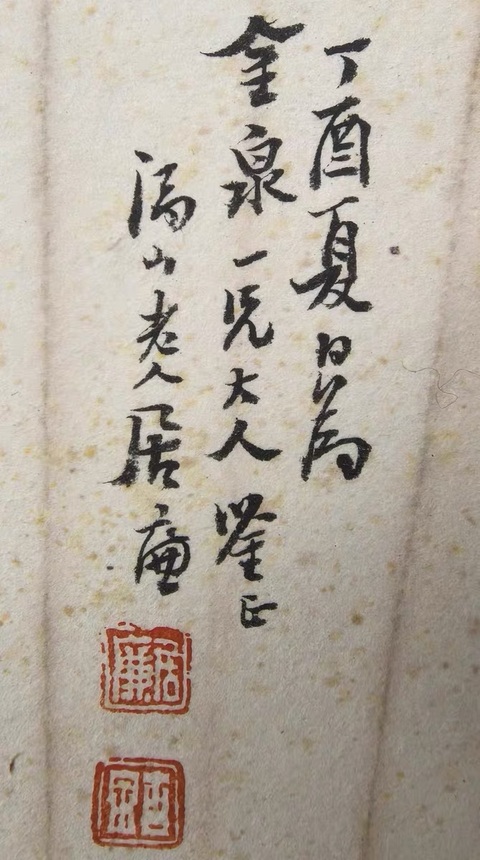 丁酉夏日為
金泉一兄大人鑒正
隔山老人居廉
居廉